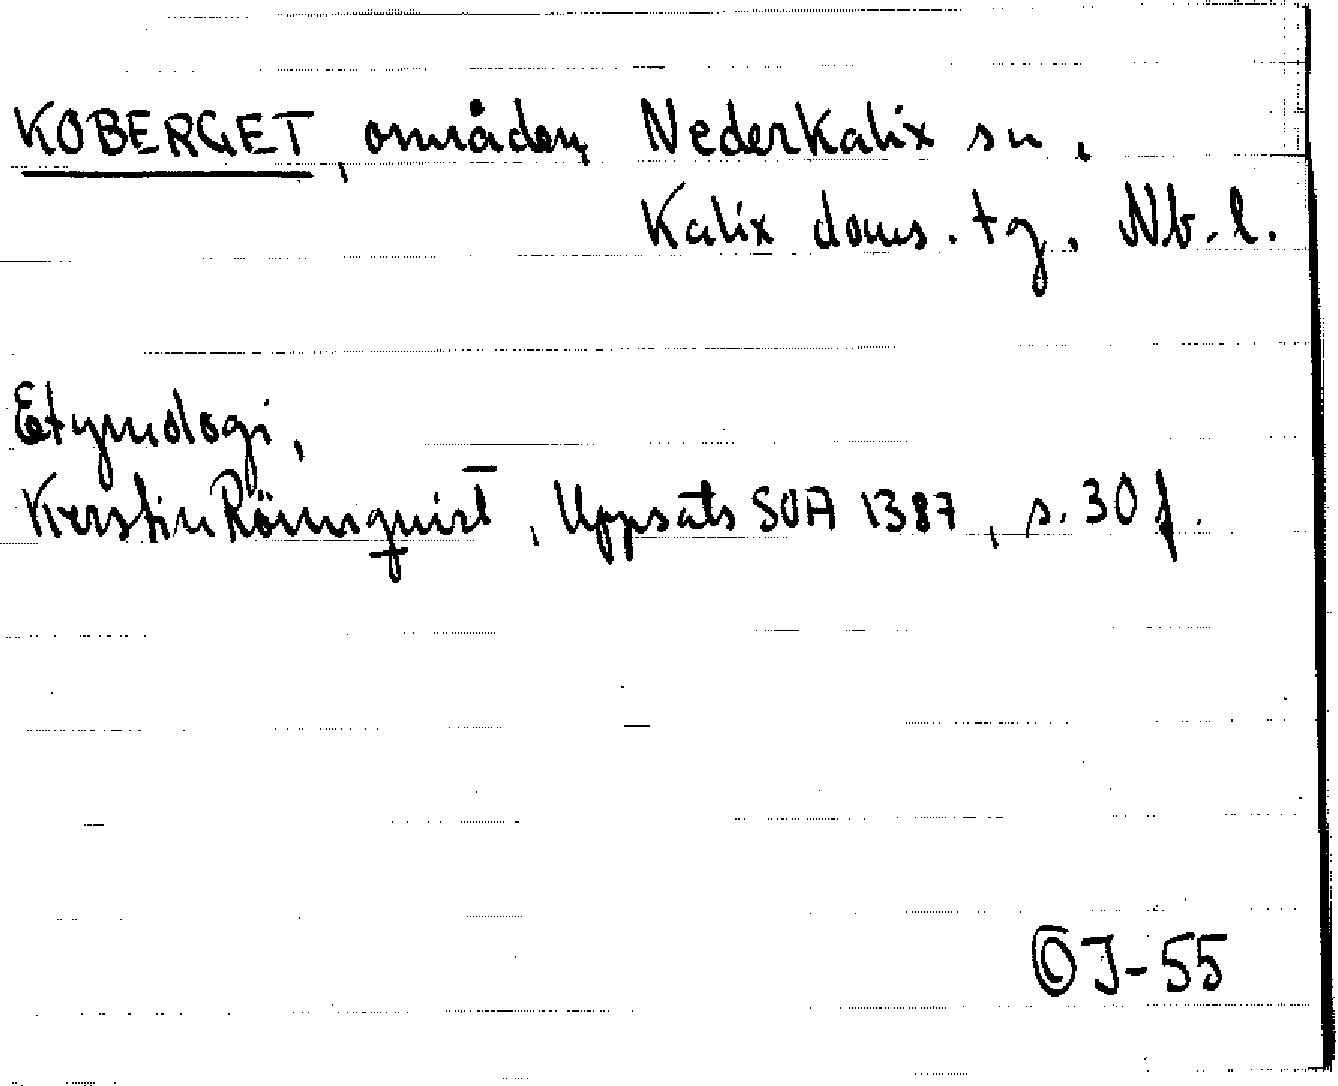 KOBERGET, områden, Nederkalix sn.
Kalix doms. tg. Nb. l.
Etymologi,
Kerstin Rönnquist, Uppsats SOA 1387, s. 30 f.
© J-55